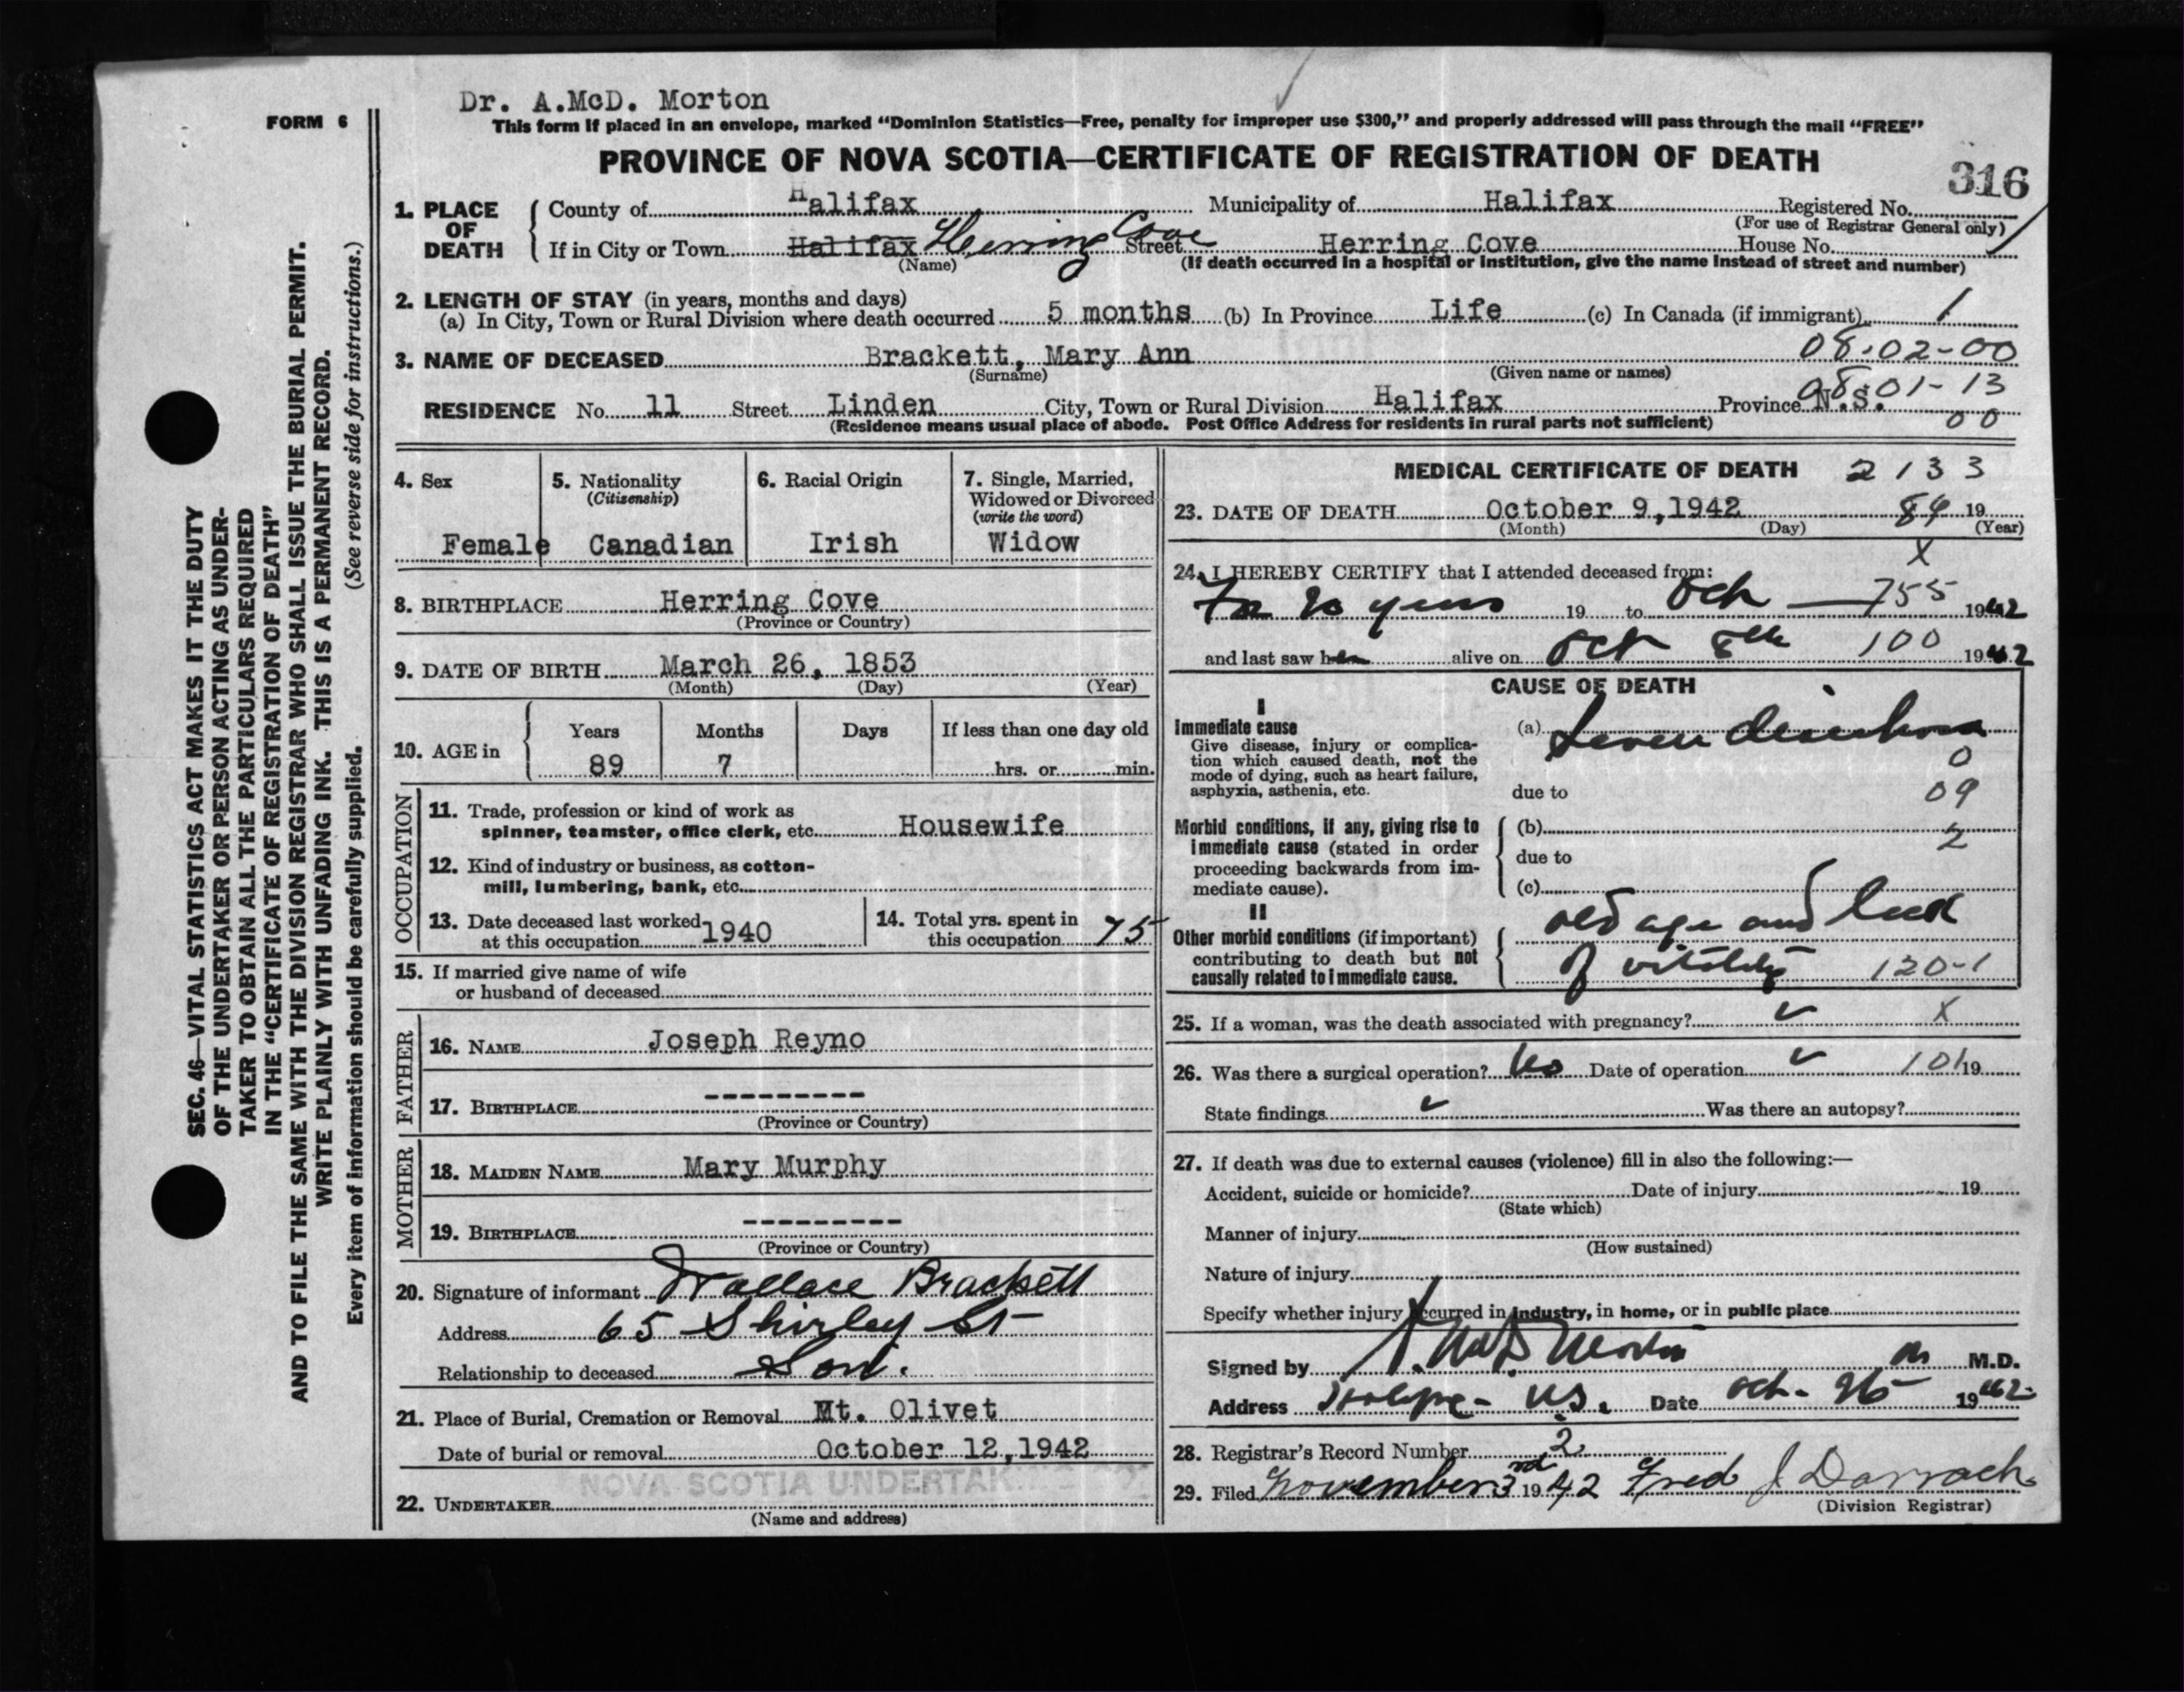 Dr. A.McD. Morton
FORM 6
This form if placed in an envelope, marked "Dominion Statistics—Free, penalty for improper use $300," and properly addressed will pass through the mail "FREE"
PROVINCE OF NOVA SCOTIA—CERTIFICATE OF REGISTRATION OF DEATH
316
1. PLACE OF DEATH { County of Halifax Municipality of Halifax Registered No.
(For use of Registrar General only)
If in City or Town Halifax Herring Cove Street Herring Cove House No.
(Name) (If death occurred in a hospital or institution, give the name instead of street and number)
2. LENGTH OF STAY (in years, months and days)
(a) In City, Town or Rural Division where death occurred 5 months (b) In Province Life (c) In Canada (if immigrant) 1
08-02-00
3. NAME OF DECEASED Brackett, Mary Ann
(Surname) (Given name or names)
08-01-13
RESIDENCE No. 11 Street Linden City, Town or Rural Division Halifax Province N.S.
(Residence means usual place of abode. Post Office Address for residents in rural parts not sufficient) 00
4. Sex
Female
5. Nationality
(Citizenship)
Canadian
6. Racial Origin
Irish
7. Single, Married,
Widowed or Divorced
(write the word)
Widow
8. BIRTHPLACE Herring Cove
(Province or Country)
9. DATE OF BIRTH March 26, 1853
(Month) (Day) (Year)
10. AGE in { Years Months Days If less than one day old
89 7 hrs. or min.
OCCUPATION
11. Trade, profession or kind of work as
spinner, teamster, office clerk, etc. Housewife
12. Kind of industry or business, as cotton-
mill, lumbering, bank, etc.
13. Date deceased last worked
at this occupation 1940
14. Total yrs. spent in
this occupation 75
15. If married give name of wife
or husband of deceased
FATHER
16. NAME Joseph Reyno
17. BIRTHPLACE ---------
(Province or Country)
MOTHER
18. MAIDEN NAME Mary Murphy
19. BIRTHPLACE ---------
(Province or Country)
20. Signature of informant Wallace Brackett
Address 65 Shirley St
Relationship to deceased Son.
21. Place of Burial, Cremation or Removal Mt. Olivet
Date of burial or removal October 12, 1942
NOVA SCOTIA UNDERTAK
22. UNDERTAKER
(Name and address)
MEDICAL CERTIFICATE OF DEATH 2133
23. DATE OF DEATH October 9, 1942 89 19
(Month) (Day) (Year)
X
24. I HEREBY CERTIFY that I attended deceased from:
For years 19 to Oct 755 1942
and last saw her alive on Oct 8th 100 1942
CAUSE OF DEATH
I
Immediate cause
Give disease, injury or complica-
tion which caused death, not the
mode of dying, such as heart failure,
asphyxia, asthenia, etc.
(a) Severe diarrhoea
0
due to 09
Morbid conditions, if any, giving rise to
immediate cause (stated in order
proceeding backwards from im-
mediate cause).
(b) 2
due to
(c)
II
Other morbid conditions (if important)
contributing to death but not
causally related to immediate cause.
old age and lack
of vitality 120-1
25. If a woman, was the death associated with pregnancy? ✓ X
26. Was there a surgical operation? No Date of operation ✓ 101 19
State findings ✓ Was there an autopsy?
27. If death was due to external causes (violence) fill in also the following:—
Accident, suicide or homicide? Date of injury 19
(State which)
Manner of injury
(How sustained)
Nature of injury
Specify whether injury occurred in industry, in home, or in public place
Signed by A. McD Morton M.D.
Address N.S. Date Oct. 26 1942
28. Registrar's Record Number 2
29. Filed November 3rd 1942 Fred J Darrach
(Division Registrar)
SEC. 46—VITAL STATISTICS ACT MAKES IT THE DUTY
OF THE UNDERTAKER OR PERSON ACTING AS UNDER-
TAKER TO OBTAIN ALL THE PARTICULARS REQUIRED
IN THE "CERTIFICATE OF REGISTRATION OF DEATH"
AND TO FILE THE SAME WITH THE DIVISION REGISTRAR WHO SHALL ISSUE THE BURIAL PERMIT.
WRITE PLAINLY WITH UNFADING INK. THIS IS A PERMANENT RECORD.
Every item of information should be carefully supplied. (See reverse side for instructions.)